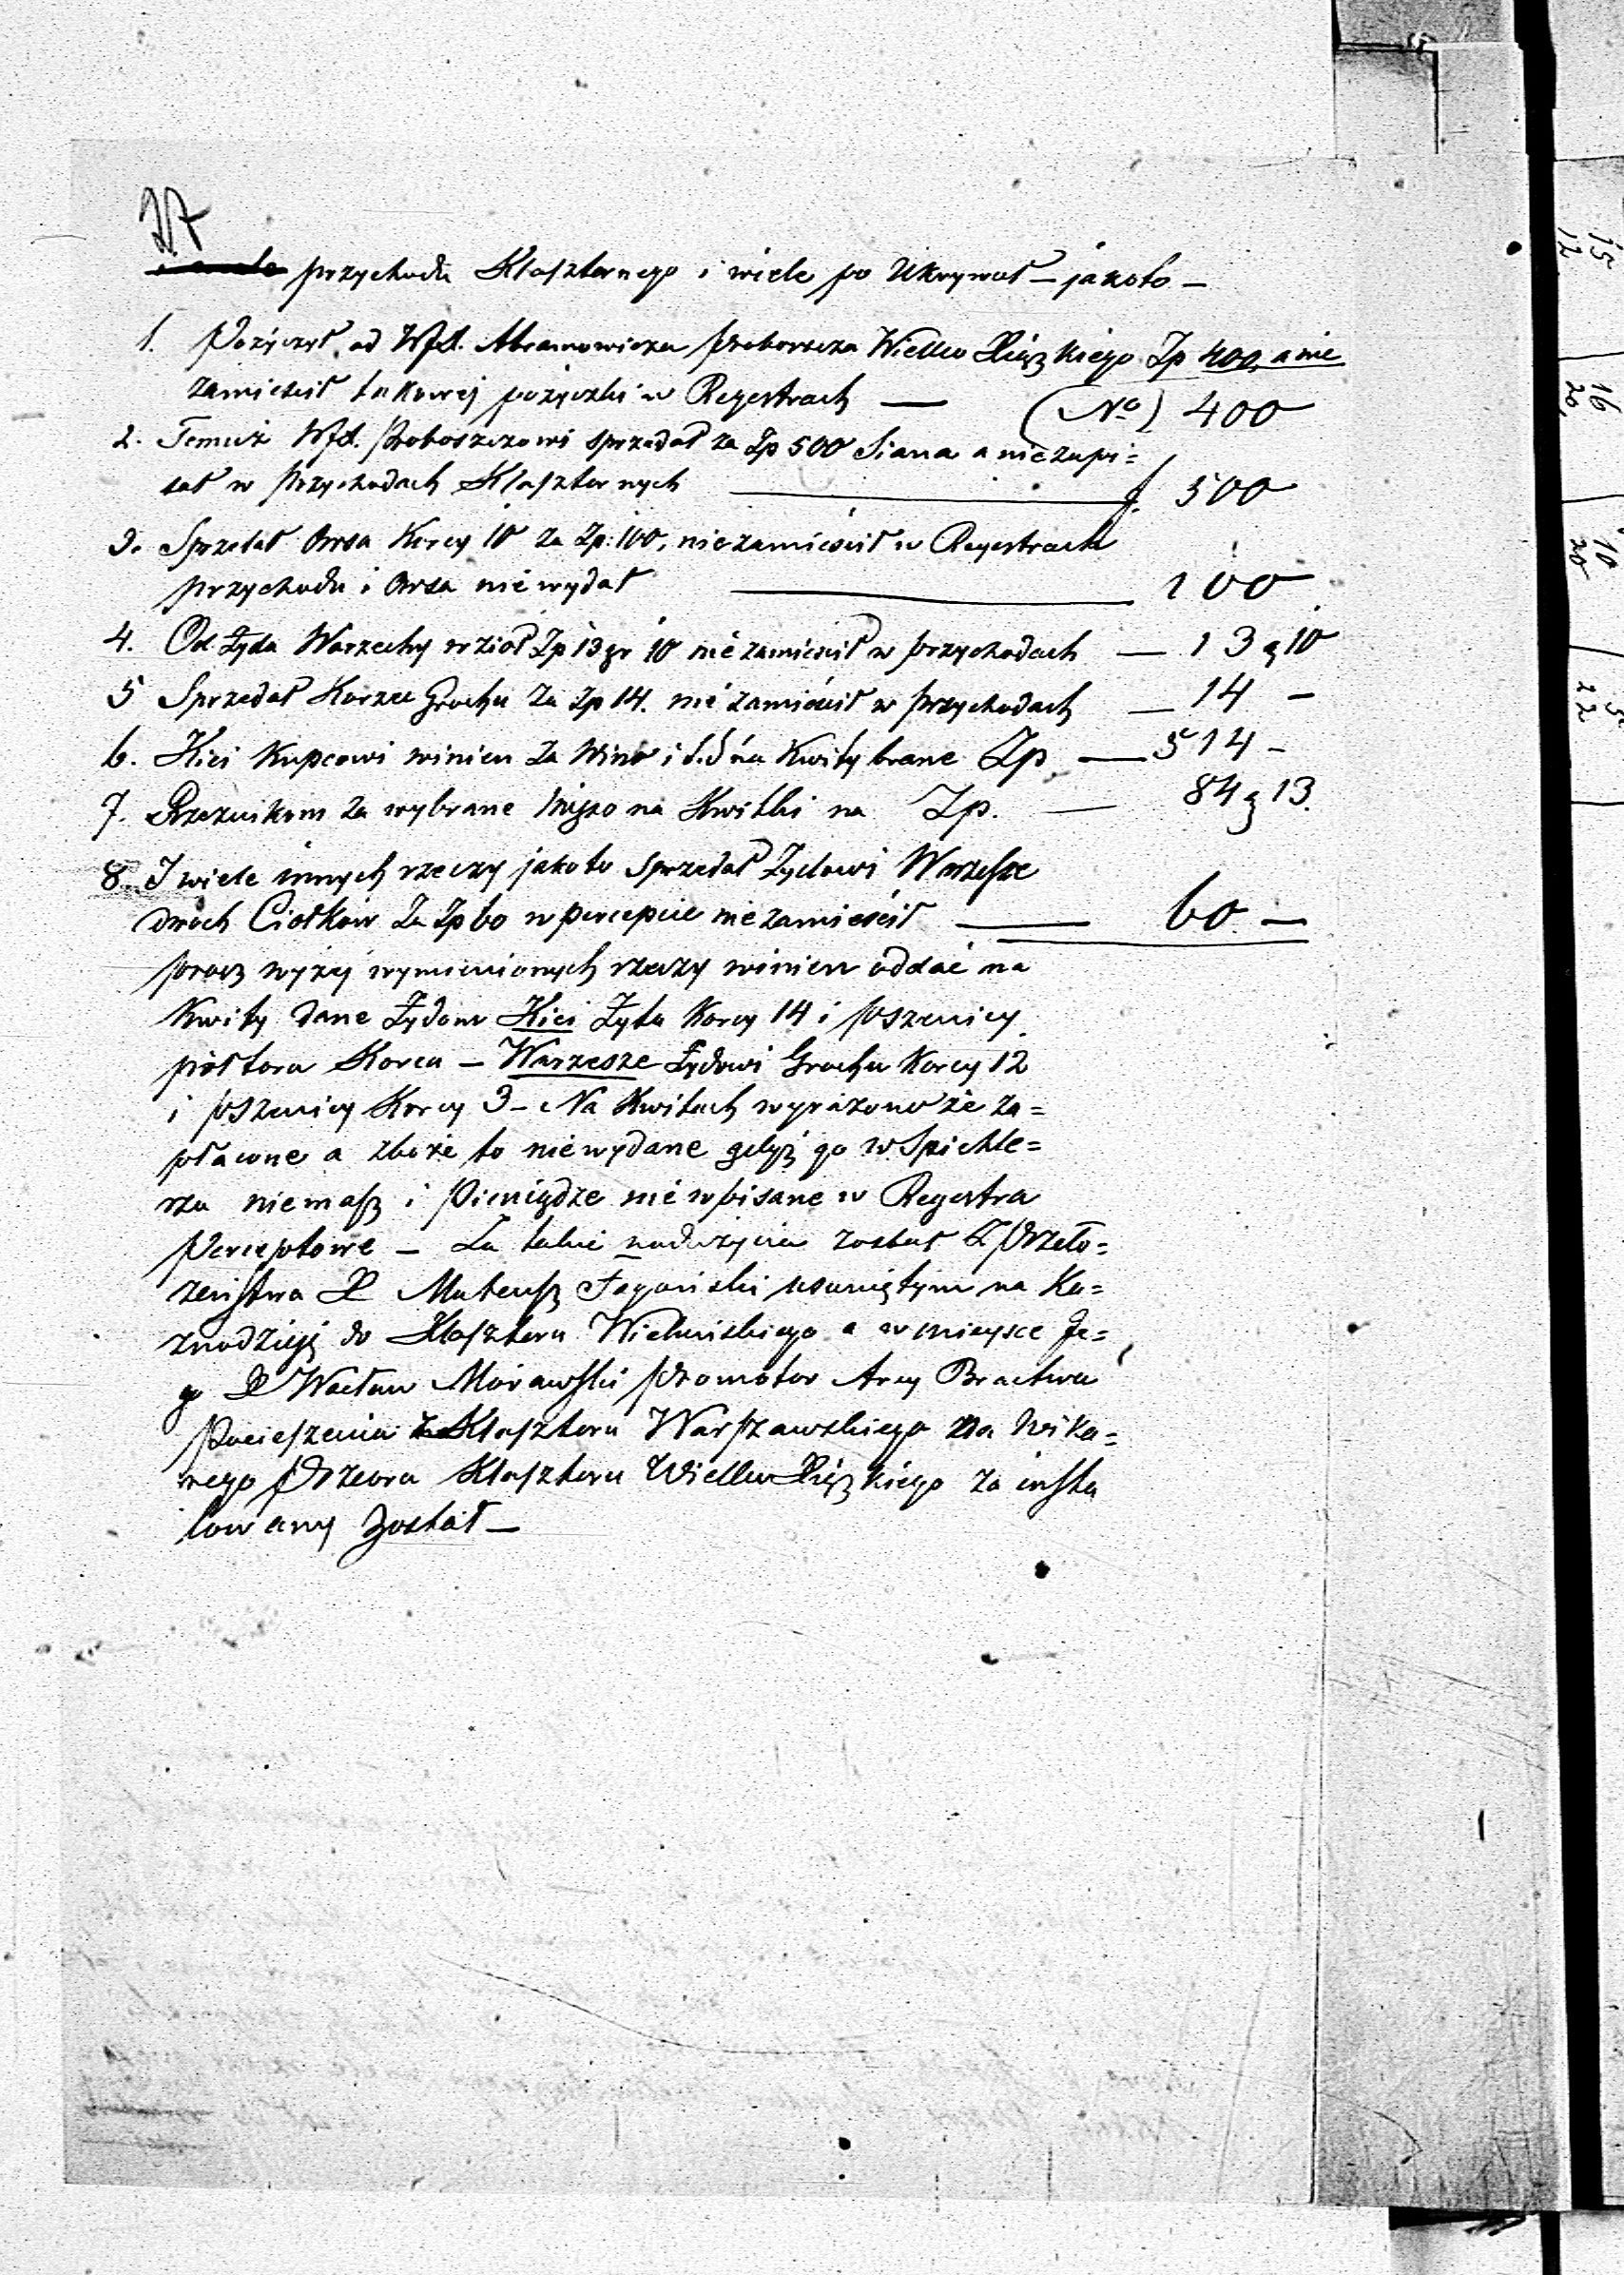 27
przychodu Klasztornego i wiele po Ukrywał – jakoto –
1. Pożyczył od WJX. Abramowicza Proboszcza Wielko Xiązkiego Zp 400, a nie
zamieścił takowej pożyczki w Regestrach — (No) 400
2. Temuż WJX. Proboszczowi sprzedał za Zp 500 Siana a niezapi=
sał w Przychodach Klasztornych — f. 500
3. Sprzedał Owsa Korcy 10 za Zp: 100, niezamieścił w Regestrach
przychodu i Owsa niewydał — 100
4. Od Żyda Warzechy wzioł Zp 13 gr 10 niezamieścił w przychodach — 13 g 10
5 Sprzedał Korzec Grochu za Zp 14. niezamieścił w przychodach — 14 –
6. Kici Kupcowi winien za Wino i t.d na Kwity brane Zp — 514 –
7. Rzeznikom za wybrane Mięso na Kwitki na Zp. — 84 g 13.
8. I wiele innych rzeczy jakoto sprzedał Żydowi Warzesze
dwóch Ciołków za Zp 60 w percepcie niezamieścił — 60 —
procz wyżej wymienionych rzeczy winien oddać na
Kwity dane Żydom Kici Żyta Korcy 14 i pszenicy
półtora Korca – Warzesze Żydowi Grochu Korcy 12
i pszenicy Korcy 3 – Na Kwitach wyrażono że za=
płacone a zboże to niewydane gdyż go w Spichle=
rzu niemasz i Pieniądze niewpisane w Regestra
Perceptowe – Za takie nadużycia został z Przeło=
żeństwa X Mateusz Fagoński usuniętym na Ka=
znodzieję do Klasztoru Wieluńskiego a w mieysce Je=
go X Wacław Morawski Promotor Arcy Bractwa
Pocieszenia Klasztoru Warszawskiego na Wika=
rego Przeora Klasztoru Wielko Xiązkiego za insta
lowany został –